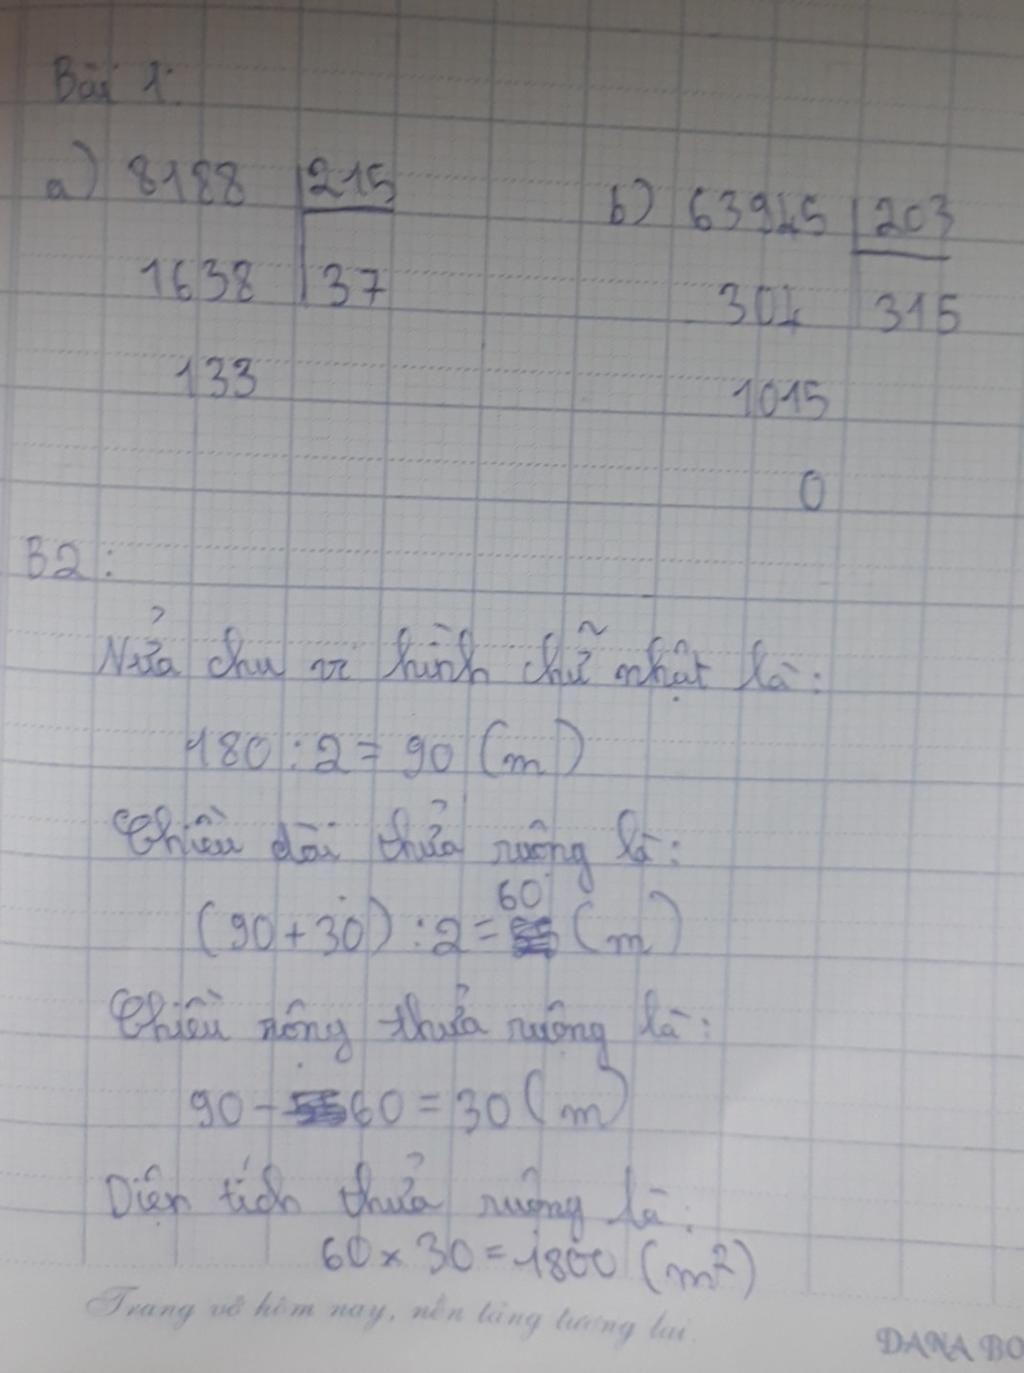 Bài 1:
a) 8188 215
1638 37
133
b) 63945 203
304 315
1015
0
B2:
Nửa chu vi hình chữ nhật là:
180 : 2 = 90 (m)
Chiều dài thửa ruộng là:
(90 + 30) : 2 = 60 (m)
Chiều rộng thửa ruộng là:
90 - 60 = 30 (m)
Diện tích thửa ruộng là:
60 x 30 = 1800 (m²)
Trang vở hôm nay, nền tảng tương lai.
DANA BO